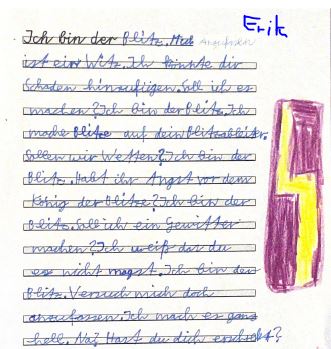 Erik
Ich bin der Blitz. Mich Angreifen
ist ein Witz. Ich könnte dir
Schaden hinzufügen. Soll ich es
machen? Ich bin der Blitz. Ich
mache Blitze auf dein Blitzableiter.
Sollen wir Wetten? Ich bin der
Blitz. Habt ihr Angst vor dem
König der Blitze? Ich bin der
Blitz. Soll ich ein Gewitter
machen? Ich weiß das du
es nicht magst. Ich bin der
Blitz. Versuch mich doch
anzufassen. Ich mach es ganz
hell. Na? Hast du dich erschreckt?